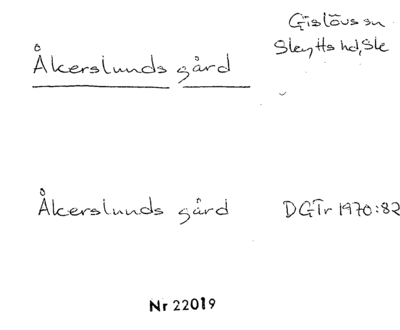 Åkerslunds gård
Gislövs sn
Skytts hd, Sk
Åkerslunds gård DGTr 1970:82
Nr 22019